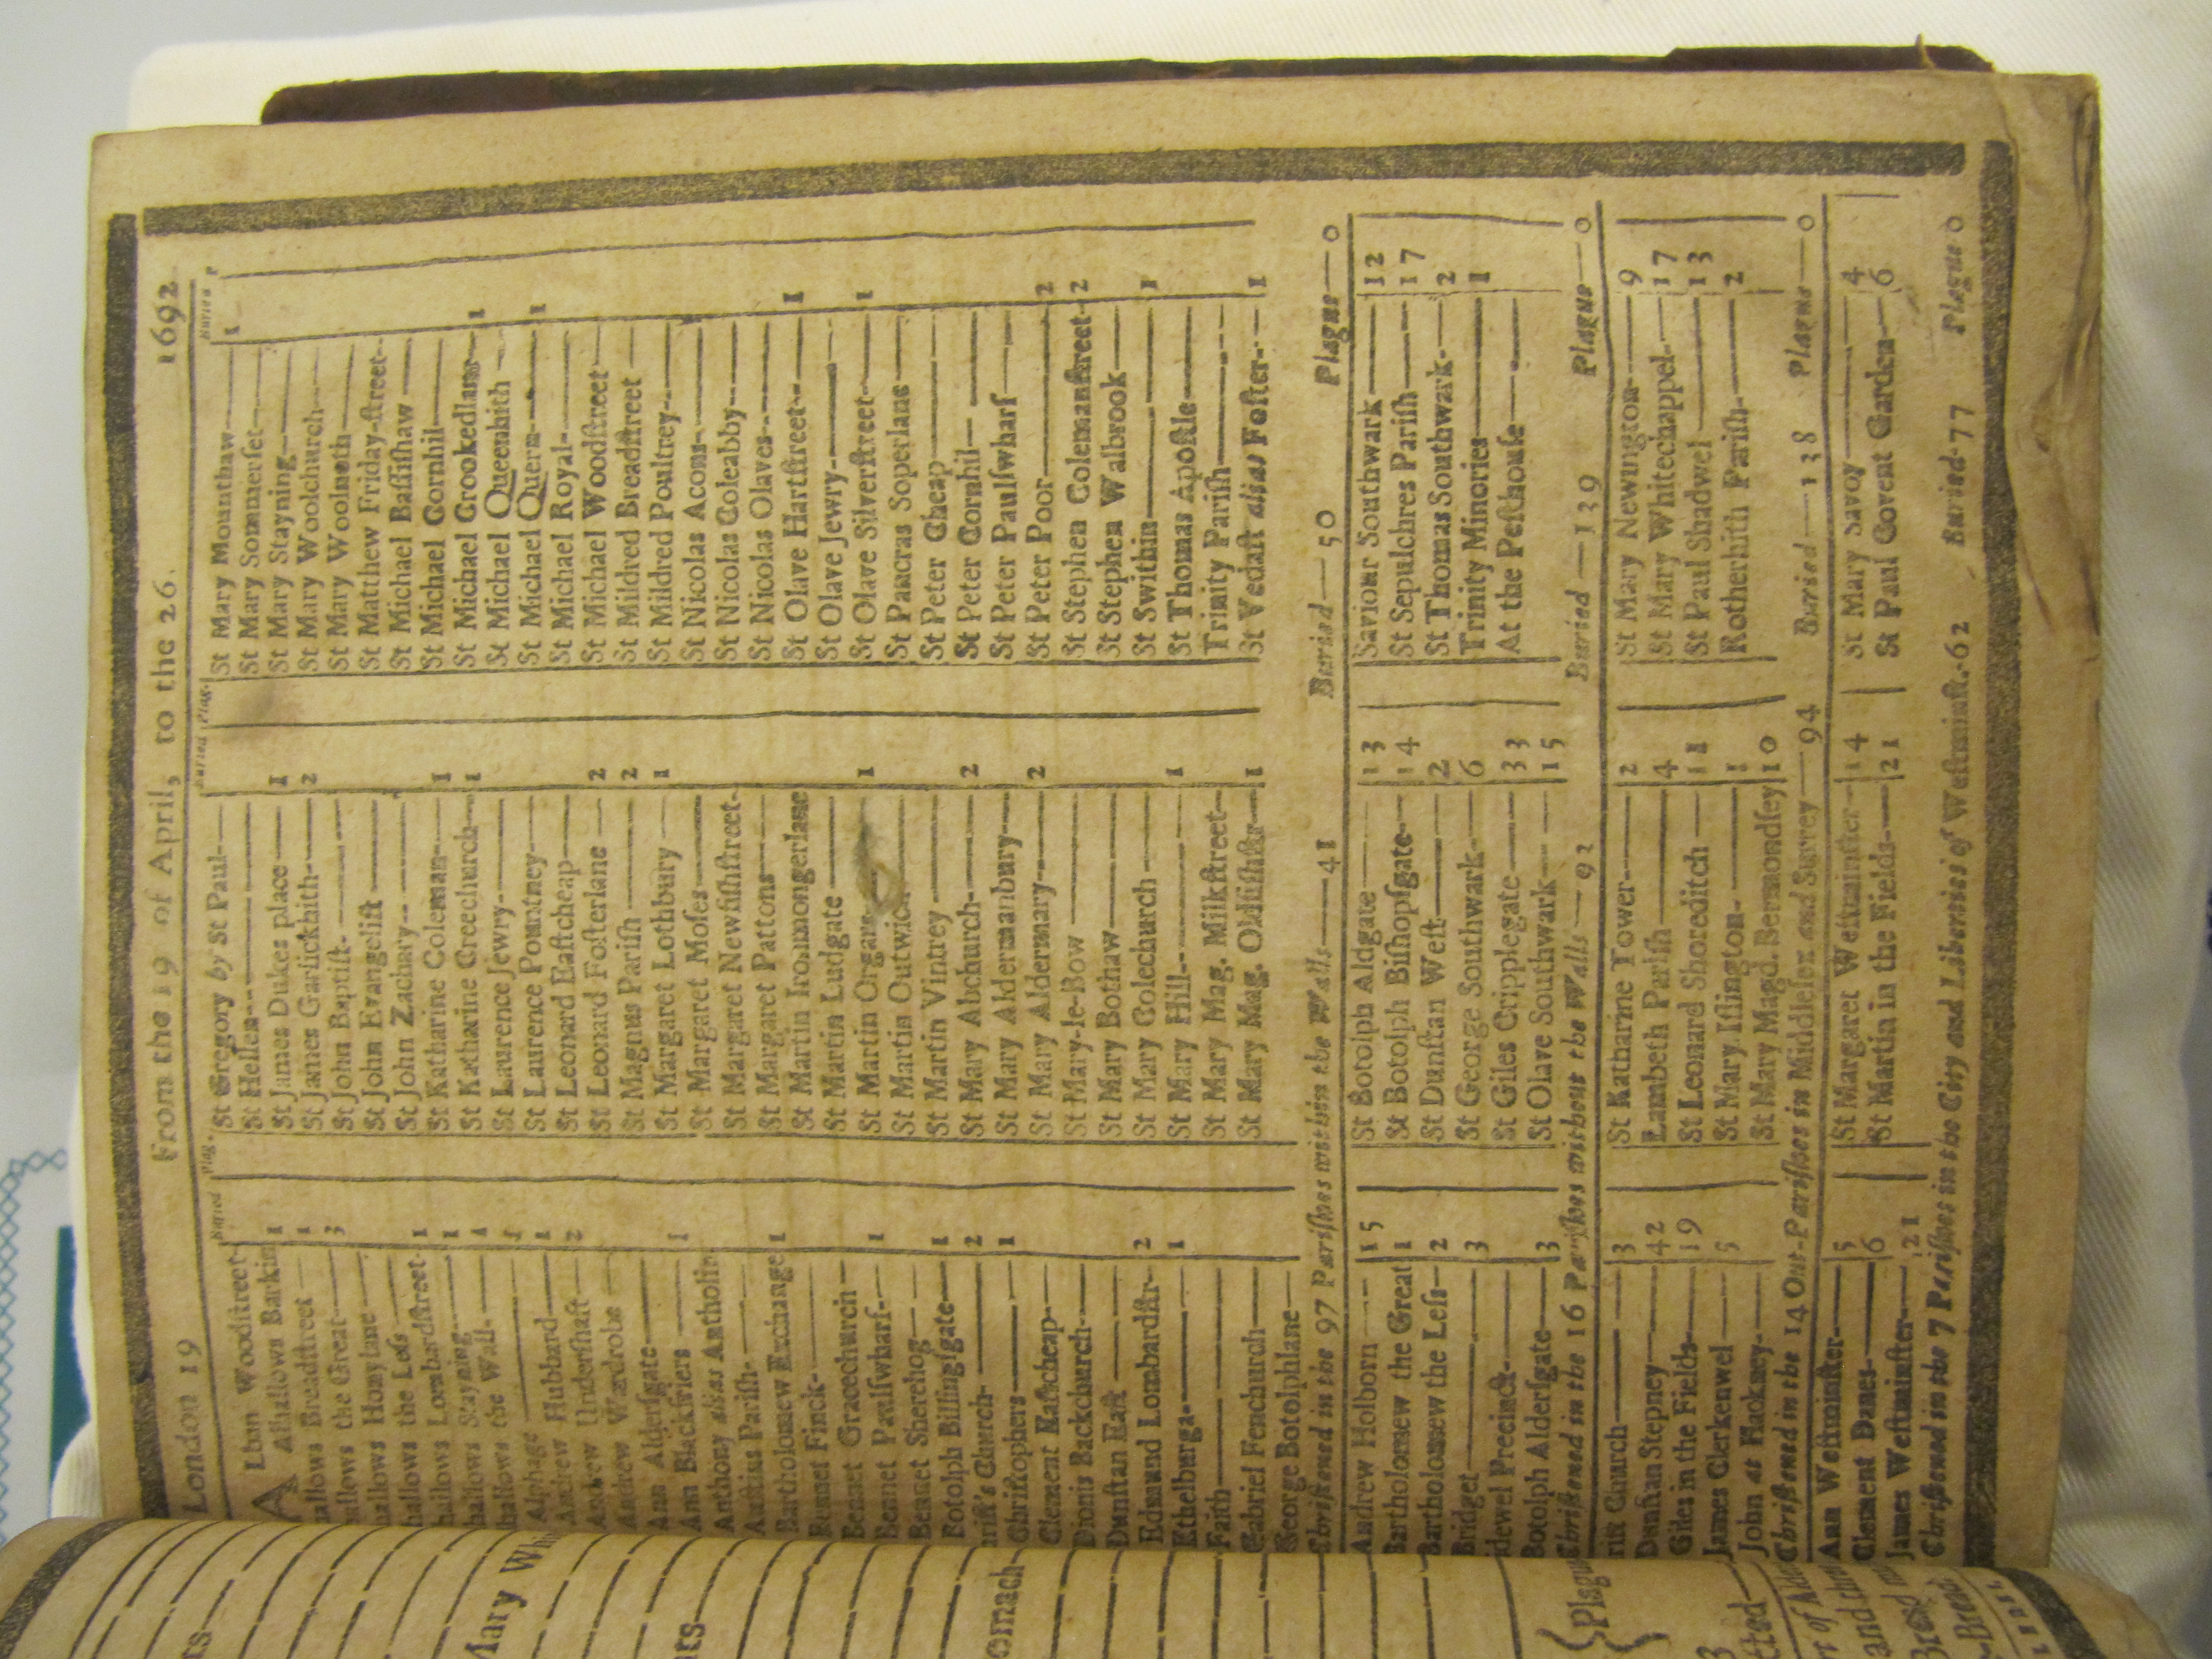 London 19 From the 19 of April, to the 26. 1692
Buried Plag.
ALban Woodſtreet
Alhallows Barkin 1
hallows Breadſtreet 1
hallows the Great 3
hallows Honylane
hallows the Leſs
hallows Lombardſtreet 1
hallows Stayning 1
hallows the Wall 1
Alphage 1
Andrew Hubbard 1
Andrew Underſhaft 2
Andrew Wardrobe
Ann Alderſgate
Ann Blackfriers 1
Anthony alias Antholin
Auſtins Pariſh
Bartholomew Exchange 1
Bennet Finck
Bennet Gracechurch
Bennet Paulſwharf 1
Bennet Sherehog
Botolph Billingſgate 1
hriſt's Church 2
Chriſtophers 1
Clement Eaſtcheap
Dionis Backchurch
Dunſtan Eaſt
Edmund Lombardſtr 2
Ethelburga 1
Faith
Gabriel Fenchurch
George Botolphlane
Buried Plag.
St Gregory by St Paul
St Hellen
St James Dukes place 1
St James Garlickhith 2
St John Baptiſt
St John Evangeliſt
St John Zachary
St Katharine Coleman 1
St Katharine Creechurch 1
St Laurence Jewry
St Laurence Pountney
St Leonard Eaſtcheap
St Leonard Foſterlane 2
St Magnus Pariſh 2
St Margaret Lothbury 1
St Margaret Moſes
St Margaret Newfiſhſtreet
St Margaret Pattons
St Martin Ironmongerlane
St Martin Ludgate
St Martin Orgars 1
St Martin Outwich
St Martin Vintrey
St Mary Abchurch 2
St Mary Aldermanbury
St Mary Aldermary 2
St Mary-le-Bow
St Mary Bothaw
St Mary Colechurch
St Mary Hill 1
St Mary Mag. Milkſtreet
St Mary Mag. Oldfiſhſtr 1
Buried P
St Mary Mounthaw 1
St Mary Sommerſet
St Mary Stayning
St Mary Woolchurch
St Mary Woolnoth
St Matthew Friday-ſtreet
St Michael Baſſiſhaw
St Michael Cornhil
St Michael Crookedlane 1
St Michael Queenhith
St Michael Quern 1
St Michael Royal
St Michael Woodſtreet
St Mildred Breadſtreet
St Mildred Poultrey
St Nicolas Acons
St Nicolas Coleabby
St Nicolas Olaves
St Olave Hartſtreet 1
St Olave Jewry
St Olave Silverſtreet 1
St Pancras Soperlane
St Peter Cheap
St Peter Cornhil
St Peter Paulſwharf
St Peter Poor 2
St Stephen Colemanſtreet 2
St Stephen Walbrook
St Swithin 1
St Thomas Apoſtle
Trinity Pariſh
St Vedaſt alias Foſter 1
Chriſtned in the 97 Pariſhes within the Walls 41 Buried 50 Plague 0
Andrew Holborn 15
Bartholomew the Great 1
Bartholomew the Leſs 2
Bridget 3
idewel Precinct
Botolph Alderſgate 3
St Botolph Aldgate 13
St Botolph Biſhopſgate 14
St Dunſtan Weſt 2
St George Southwark 6
St Giles Cripplegate 33
St Olave Southwark 15
Saviour Southwark 12
St Sepulchres Pariſh 17
St Thomas Southwark 2
Trinity Minories 1
At the Peſthouſe
Chriſtned in the 16 Pariſhes without the Walls 92 Buried 139 Plague 0
riſt Church 3
Dunſtan Stepney 42
Giles in the Fields 19
James Clerkenwel 5
John at Hackney
St Katharine Tower 2
Lambeth Pariſh 4
St Leonard Shoreditch 11
St Mary Iſlington 1
St Mary Magd. Bermondſey 10
St Mary Newington 9
St Mary Whitechappel 17
St Paul Shadwel 13
Rotherhith Pariſh 2
Chriſtned in the 14 Out-Pariſhes in Middleſex and Surrey 94 Buried 138 Plague 0
Ann Weſtminſter 5
Clement Danes 6
James Weſtminſter 21
St Margaret Weſtminſter 14
St Martin in the Fields 21
St Mary Savoy 4
St Paul Covent Garden 6
Chriſtned in the 7 Pariſhes in the City and Liberties of Weſtminſt. 62 Buried 77 Plague 0